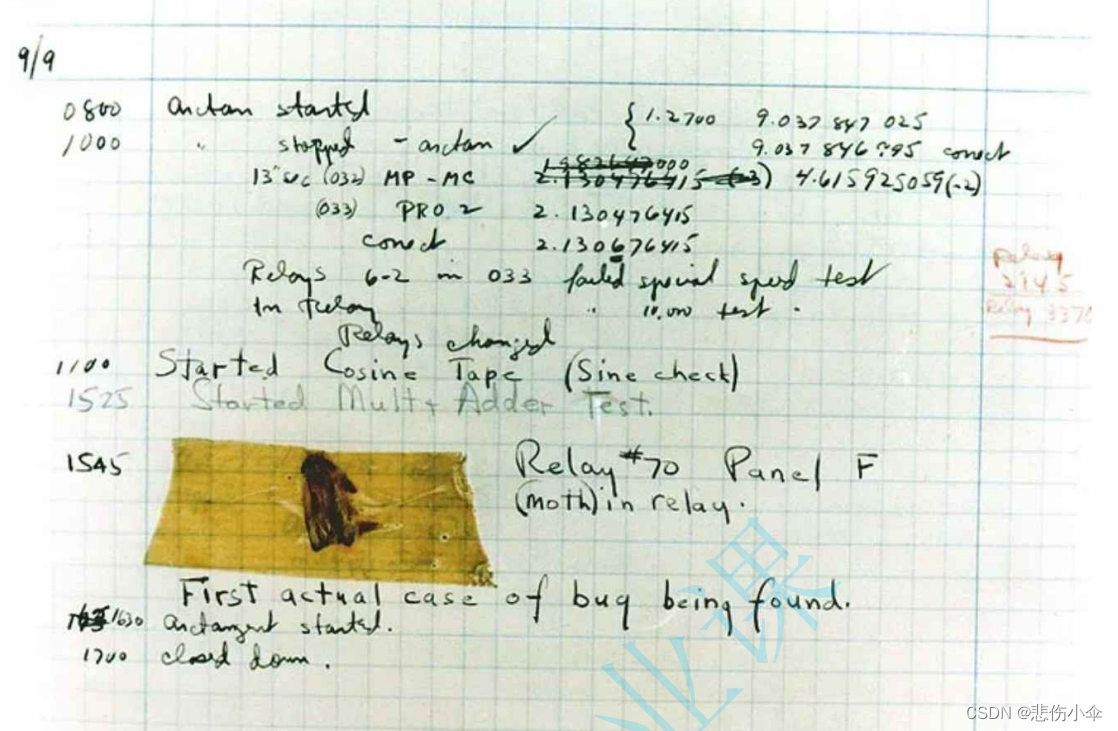 9/9
0800 arctan started { 1.2700 9.037 847 025
1000 " stopped - arctan ✓ 9.037 846 995 correct
13"uc (032) MP - MC 2.130476415 (-3) 4.615925059(-2)
(033) PRO 2 2.130476415
correct 2.130676415
Relays 6-2 in 033 failed special speed test
In Relay " 10.000 test .
Relay
2145
Relay 3370
Relays changed
1100 Started Cosine Tape (Sine check)
1525 Started Mult + Adder Test.
1545 Relay #70 Panel F
(moth) in relay.
First actual case of bug being found.
1630 arctangent started.
1700 closed down .
业课
CSDN @悲伤小伞